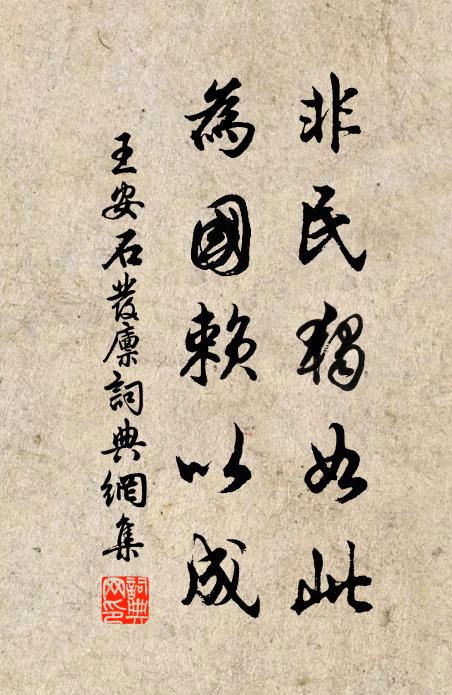 非民獨如此
為國賴以成
王安石發廪詞典網集
詞典网印